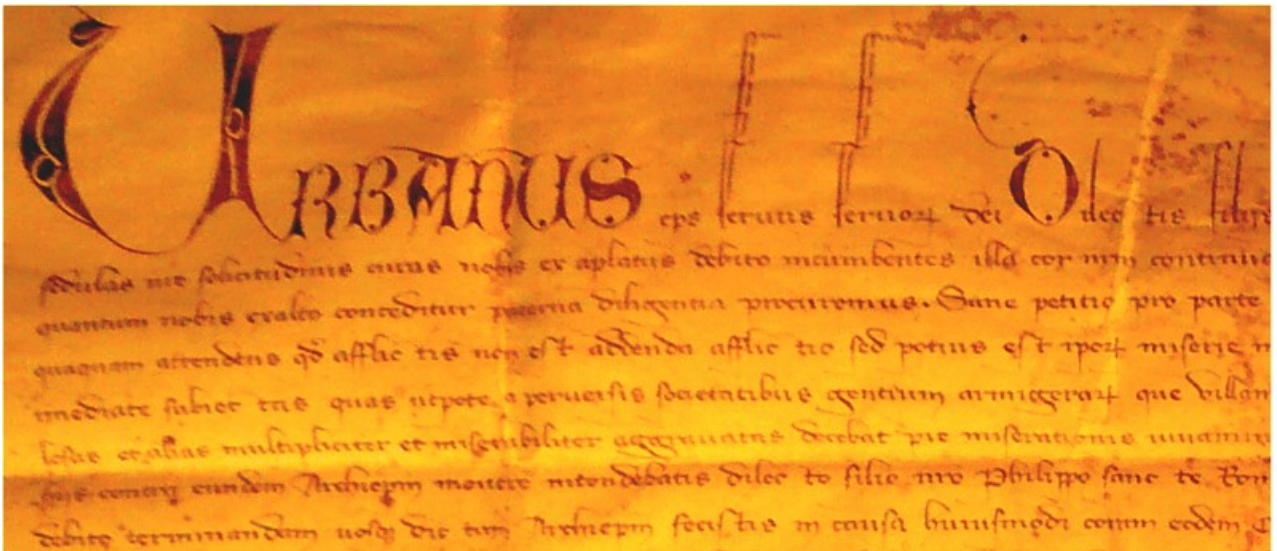 URBANUS eps servus servoꝝ dei Dilec tis filiis
sedulas nie solicitudinis curas nobis ex aplatus debito incumbentes illa cor nrm continue
quantum nobis exalto conceditur paterna diligentia procuremus. Sane petitio pro parte
quaquam attendens qd afflic tis non est addenda afflic tio sed potius est ipoꝝ miserie
imediate subiec tas quas utpote a perversis societatibus gentium armigeraꝝ que villam
et alias multipliciter et miserabiliter aggravatas decebat pie miserationis
contra eundem Archiepm movere intendebatis dilec to filio nro Philippo sanc te Rom
debito terminandam usq dic tum Archiepm fecistis in causa huiusmodi coram eodem